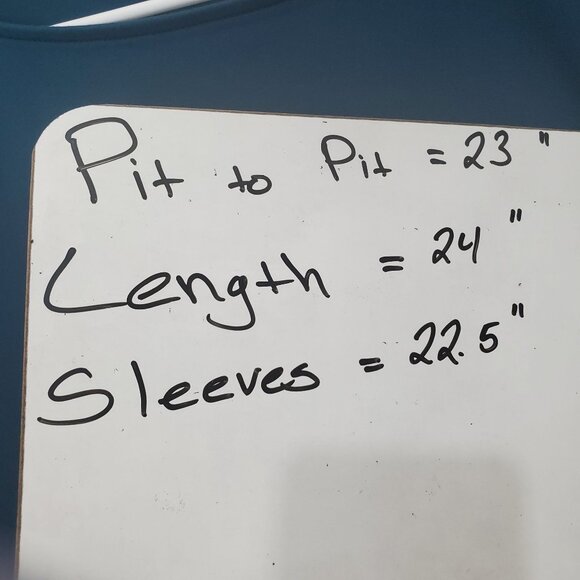 Pit to Pit = 23 "
Length = 24 "
Sleeves = 22.5 "